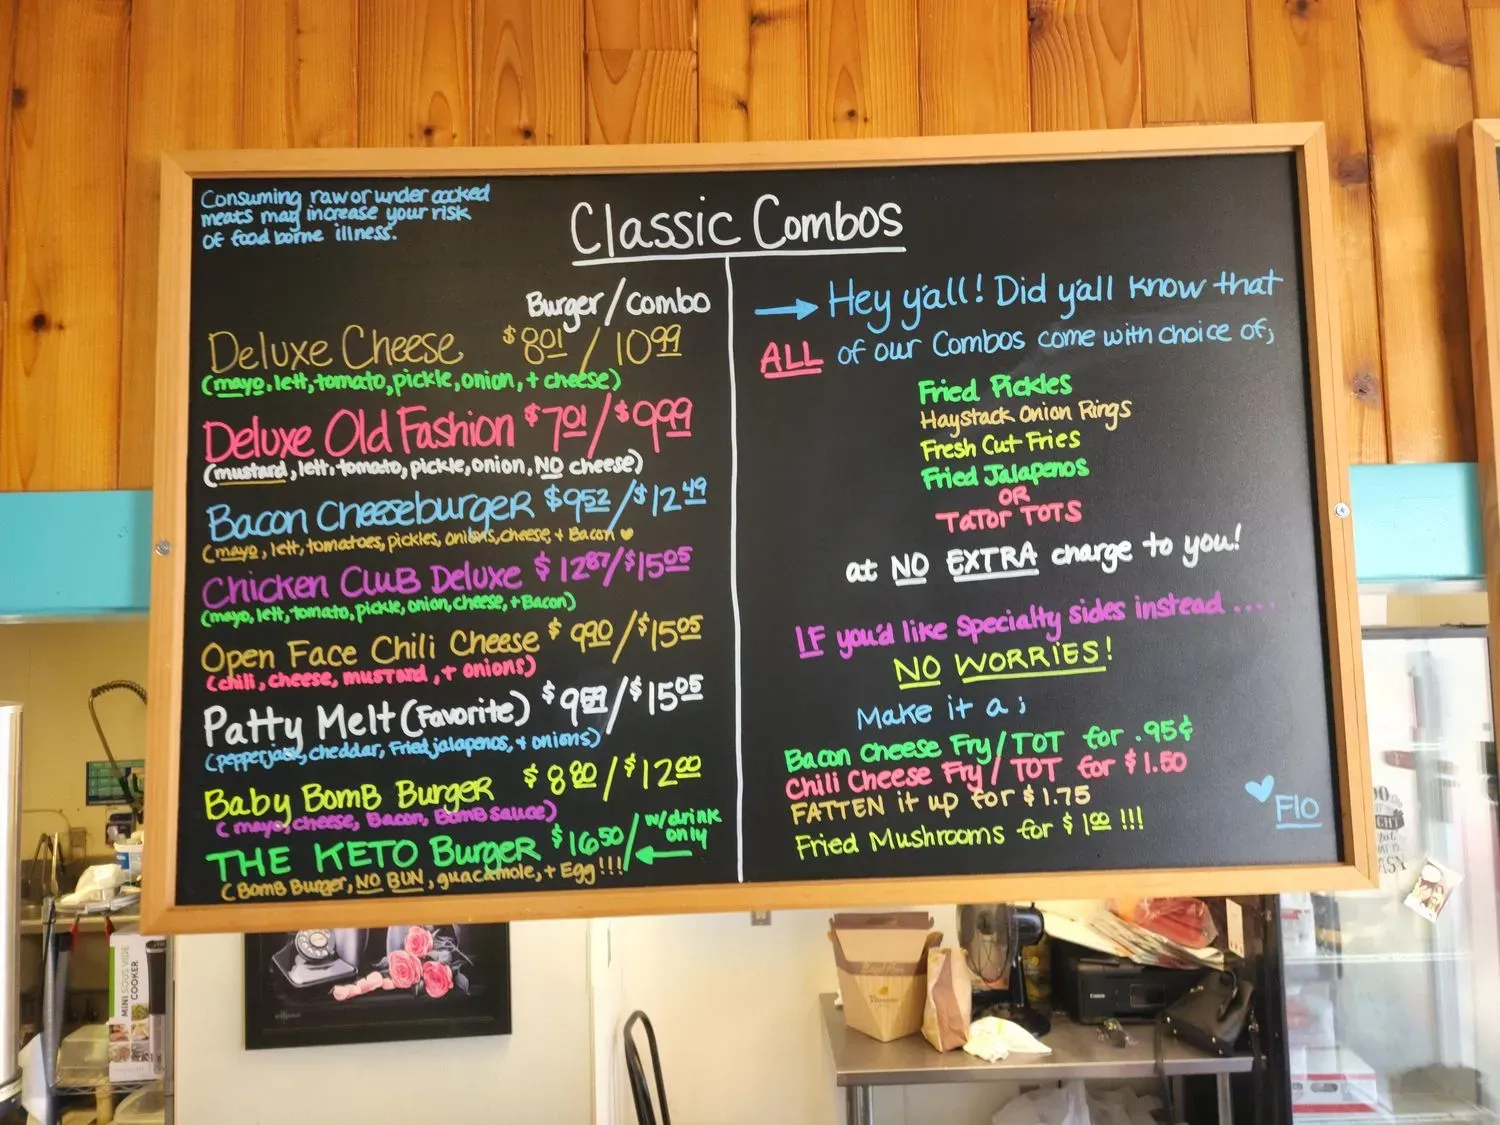 Consuming raw or under cooked
meats may increase your risk
of food borne illness.
Classic Combos
Burger/Combo
Deluxe Cheese $8.01/10.99
(mayo, lett, tomato, pickle, onion, + cheese)
Deluxe Old Fashion $7.01/$9.99
(mustard, lett, tomato, pickle, onion, NO cheese)
Bacon Cheeseburger $9.52/$12.49
(mayo, lett, tomatoes, pickles, onions, cheese, + Bacon ♥
Chicken CLUB Deluxe $12.87/$15.05
(mayo, lett, tomato, pickle, onion, cheese, + Bacon)
Open Face Chili Cheese $9.90/$15.05
(chili, cheese, mustard, + onions)
Patty Melt (Favorite) /$15.05
(pepperjack, cheddar, Fried jalapenos, + onions)
Baby BomB Burger $8.80/$12.00
(mayo, cheese, Bacon, BomB sauce)
THE KETO Burger $16.50/ w/drink
only
(BomB Burger, NO BUN, guacamole, + Egg!!!
Hey y'all! Did y'all know that
ALL of our Combos come with choice of;
Fried Pickles
Haystack Onion Rings
Fresh Cut Fries
Fried Jalapenos
OR
TaTor TOTS
at NO EXTRA charge to you!
IF you'd like specialty sides instead ....
NO WORRIES!
Make it a ;
Bacon Cheese Fry/TOT for .95¢
Chili Cheese Fry/TOT for $1.50
FATTEN it up for $1.75
Fried Mushrooms for $1.00 !!!
FIO
MINI SOUS VIDE
COOKER
Canon